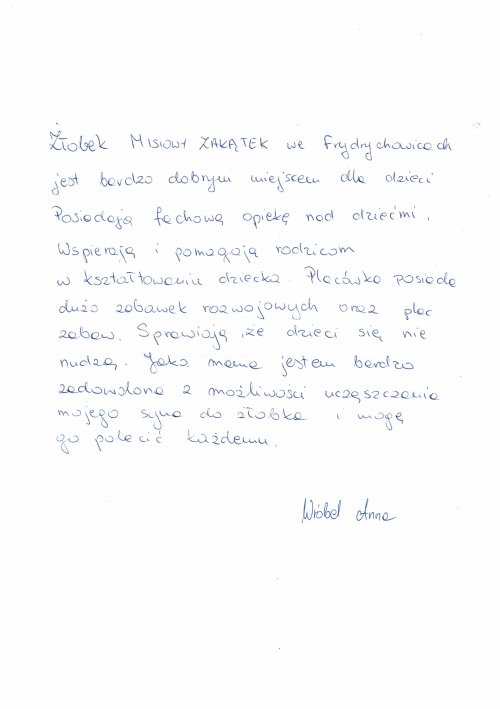 Żłobek MISIOWY ZAKĄTEK we Frydrychowicach
jest bardzo dobrym miejscem dla dzieci
Posiadają fachową opiekę nad dziećmi.
Wspierają i pomagają rodzicom
w kształtowaniu dziecka. Placówka posiada
dużo zabawek rozwojowych oraz plac
zabaw. Sprawiają, że dzieci się nie
nudzą. Jako mama jestem bardzo
zadowolona z możliwości uczęszczania
mojego syna do żłobka i mogę
go polecić każdemu.
Wróbel Anna